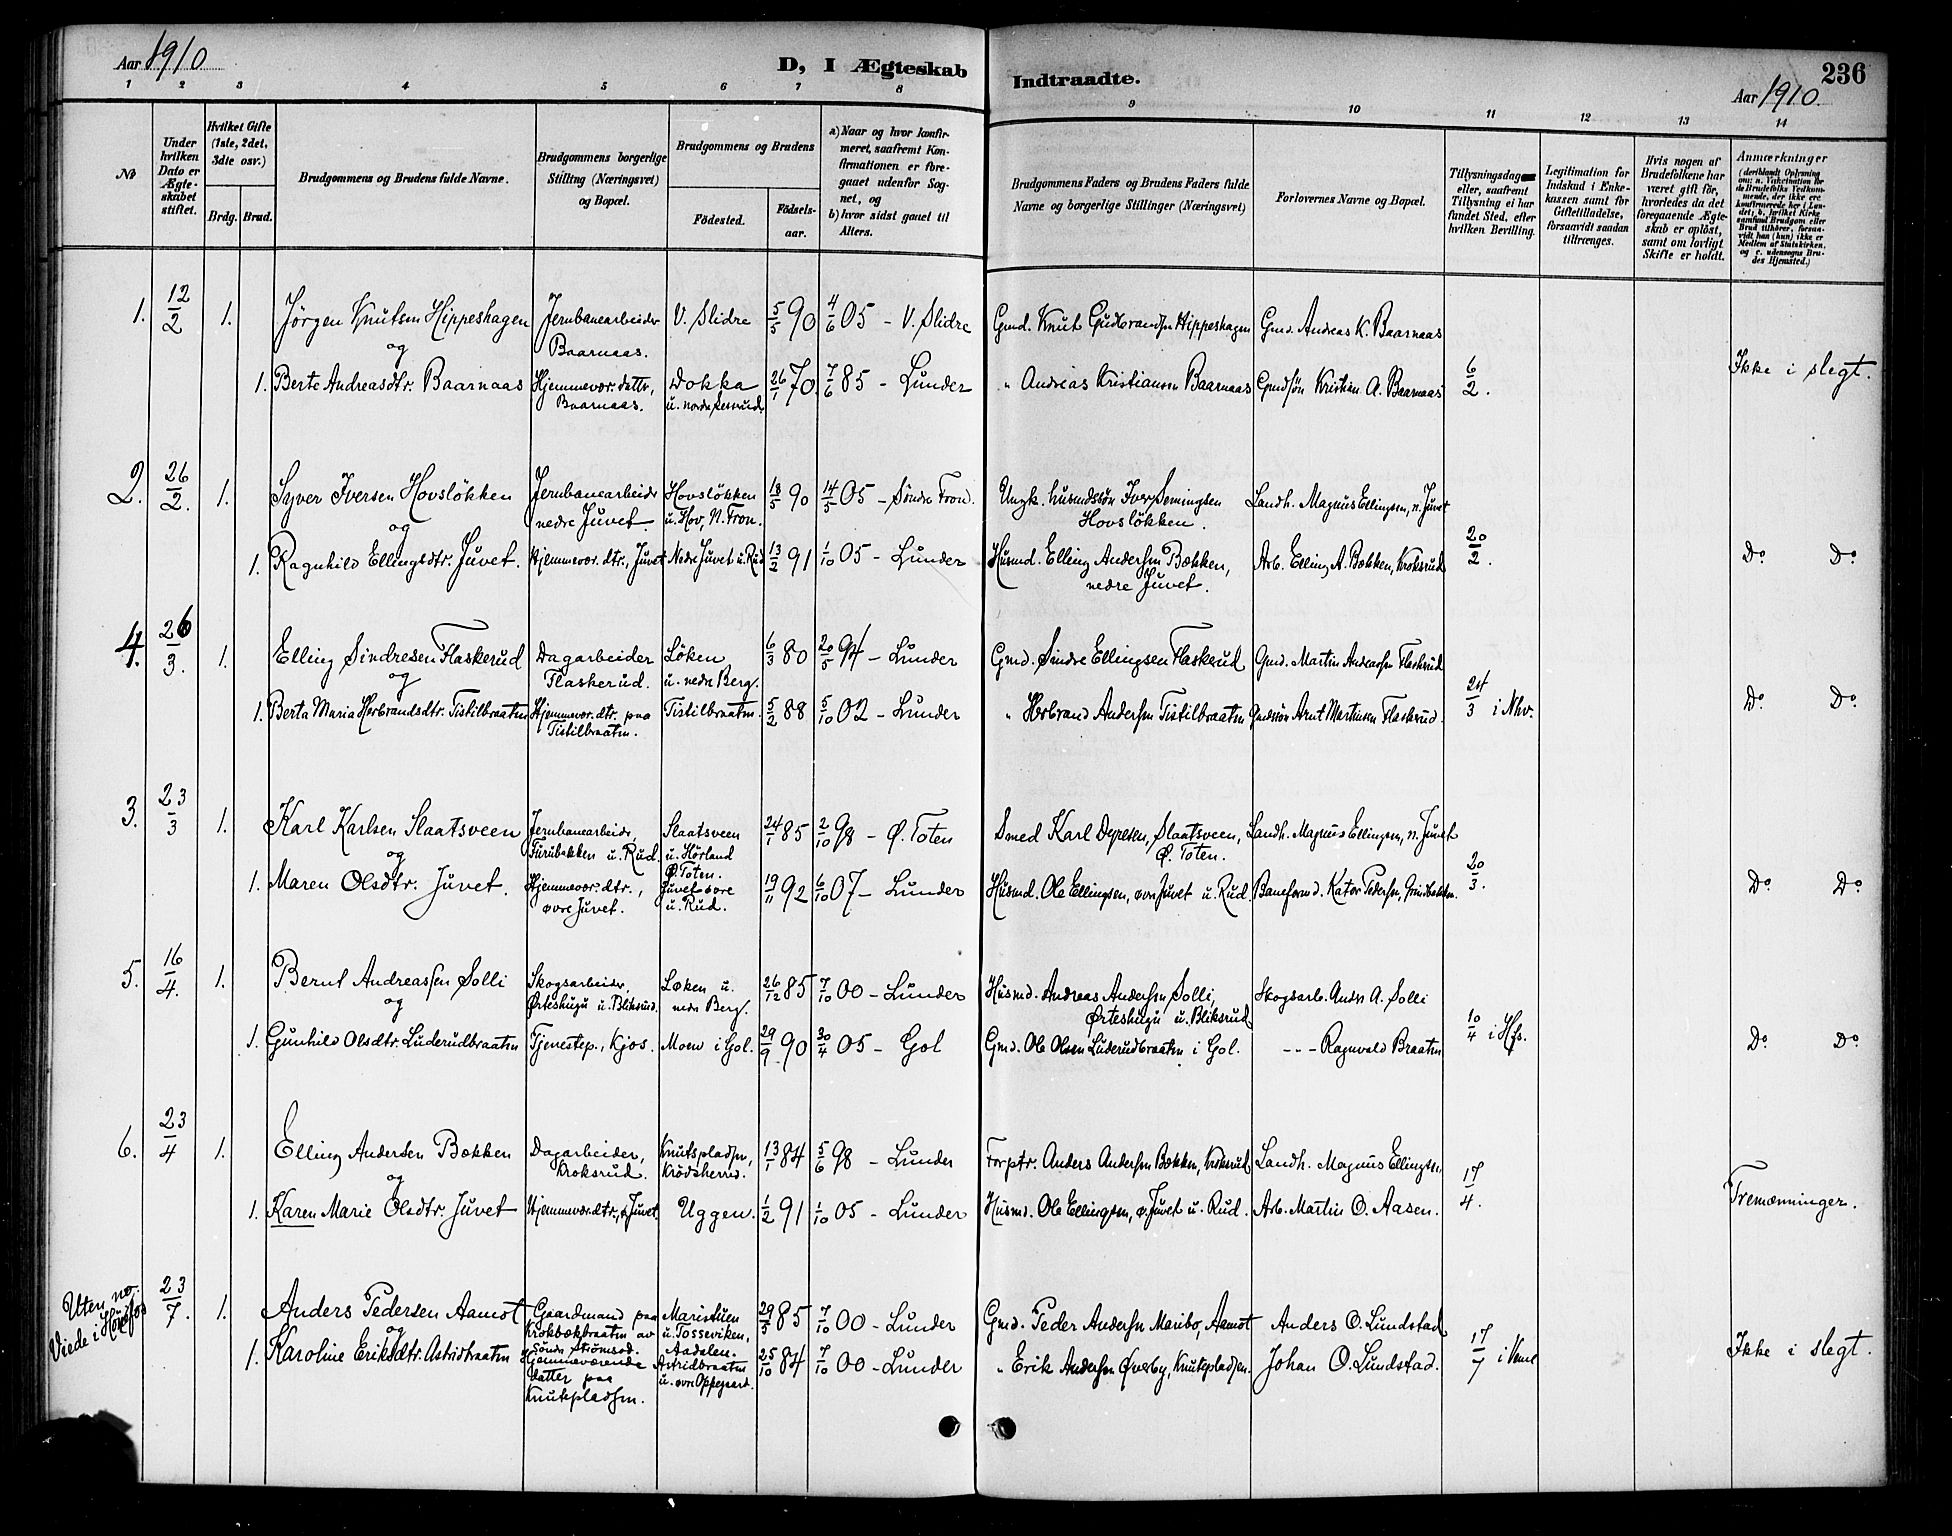 Aar 1910
D, I Ægteskab
Indtraadte.
236
Aar 1910.
1 2 3 4 5 6 7 8
9 10 11 12 13 14
No
Under hvilken Dato er Ægteskabet stiftet.
Hvilket Gifte (1ste, 2det, 3die osv.)
Brdg. Brud.
Brudgommens og Brudens fulde Navne.
Brudgommens borgerlige Stilling (Næringsvei) og Bopæl.
Brudgommens og Brudens
Fødested.
Fødselsaar.
a) Naar og hvor konfirmeret, saafremt Konfirmationen er foregaaet udenfor Sognet, og
b) hvor sidst gaaet til Alters.
Brudgommens Faders og Brudens Faders fulde Navne og borgerlige Stillinger (Næringsvei)
Forlovernes Navne og Bopæl.
Tillysningsdag eller, saafremt Tillysning ei har fundet Sted, efter hvilken Bevilling.
Legitimation for Indskud i Enkekassen samt for Giftetilladelse, forsaavidt saadan tiltrænges.
Hvis nogen af Brudefolkene har været gift før, hvorledes da det foregaaende Ægteskab er opløst, samt om lovligt Skifte er holdt.
Anmærkninger
(deriblandt Oplysning om: a. Vakcination for de Brudefolks Vedkommende, der ikke ere konfirmerede her i Landet; b. hvilket Kirkesamfund Brudgom eller Brud tilhører, forsaavidt han (hun) ikke er Medlem af Statskirken, og c. udensogns Brudes Hjemsted.)
1. 12/2 1. Jörgen Knutsen Hippeshagen Jernbanearbeider V. Slidre 5/5 90 4/6 05 - V. Slidre Gmd. Knut Gudbrandsen Hippeshagen Gmd. Andreas K. Baarnaas
og Baarnaas.
1. Berte Andreasdtr. Baarnaas Hjemmevær. datter, Dokka 26/1 70. 7/6 85 - Lunder " Andreas Kristiansen Baarnaas Gmdsön Kristian A. Baarnaas 6/2. Ikke i slegt.
Baarnaas. u. nordre
2. 26/2. 1. Syver Iversen Hovslökken Jernbanearbeider Hovslökken 18/5 90 14/5 05 - Söndre Fron. Ungk. husmdssön Iver Semingsen Landh. Magnus Ellingsen, n. Juvet
og nedre Juvet u. Hov, N. Fron. Hovslökken.
1. Ragnhild Ellingsdtr. Juvet. Hjemmevær. dtr., Juvet Nedre Juvet u. Rud 13/2 91 1/10 05 - Lunder Husmd. Elling Andersen Bækken, Arb. Elling A. Bækken, Kroksrud 20/2. Do Do
nedre Juvet.
4. 26/3. 1. Elling Sindresen Flaskerud Dagarbeider Löken 6/3 80 20/5 94 - Lunder Gmd. Sindre Ellingsen Flaskerud Gmd. Martin Andersen Flaskrud
og Flaskerud. u. nedre Berg.
1. Berta Maria Herbrandsdtr. Tistilbraaten Hjemmevær. dtr. paa Tistilbraaten. 5/2 88 5/10 02 - Lunder " Herbrand Andersen Tistilbraaten Gmdssön Arnt Martinsen Flaskrud. 24/3 i Nhv. Do Do
Tistilbraaten.
3. 23/3 1. Karl Karlsen Slaatsveen Jernbanearbeider, Slaatsveen 24/1 85 2/10 98 - Ø. Toten Smed Karl Slaatsveen, Landh. Magnus Ellingsen, n. Juvet
og Furubakken u. Rud. u. Hörland Ø. Toten. Ø. Toten.
1. Maren Olsdtr. Juvet. Hjemmevær. dtr., Juvet øvre 19/11 92 6/10 07 - Lunder Husmd. Ole Ellingsen, øvre Juvet u. Rud. Baneformd. Kator Pedersen, 20/3. Do Do
øvre Juvet. u. Rud.
5. 16/4. 1. Bernt Andreassen Solli Skogsarbeider, Løken u. 26/12 85 7/10 00 - Lunder Husmd. Andreas Andersen Solli, Skogsarb. Andr. A. Solli
og Ørteshugu u. Bliksrud. nedre Berg. Ørteshugu u. Bliksrud
1. Gunhild Olsdtr. Luderudbraaten Tjenestep., Kjos. Moen i Gol. 29/9 90 30/4 05 - Gol Gmd. Ole Olsen Luderudbraaten i Gol. - - - Ragnvald Braaten 10/4 i Hfs. Do Do
6. 23/4 1. Elling Andersen Bækken Dagarbeider, Knutspladsen, 13/1 84 5/6 98 - Lunder Forptr. Anders Andersen Bækken, Kroksrud Landh. Magnus Ellingsen
og Kroksrud. Krödsherred.
1. Karen Marie Olsdtr. Juvet Hjemmevær. dtr., ø. Juvet Uggen. 1/2 91 1/10 05 - Lunder Husmd. Ole Ellingsen, ø. Juvet u. Rud. Arb. Martin O. Aasen. 17/4. Tremænninger.
Uten no. Viede i Hönefos 23/7. 1. Anders Pedersen Aamot Gaardmand paa Maristuen 29/5 85 7/10 00 - Lunder Gmd. Peder Andersen Maribo, Aamot Anders O. Lundstad
og Krokbækbraaten av u. Tosseviken,
Söndr. Strömsod. Aadalen.
1. Karoline Eriksdtr. Astridbraaten Hjemmeværende Astridbraaten 25/10 84 7/10 00 - Lunder " Erik Andersen Øverby, Knutspladsen. Johan O. Lundstad. 17/7 i Ikke i slegt.
datter paa u. øvre Oppegaard.
Knutspladsen.